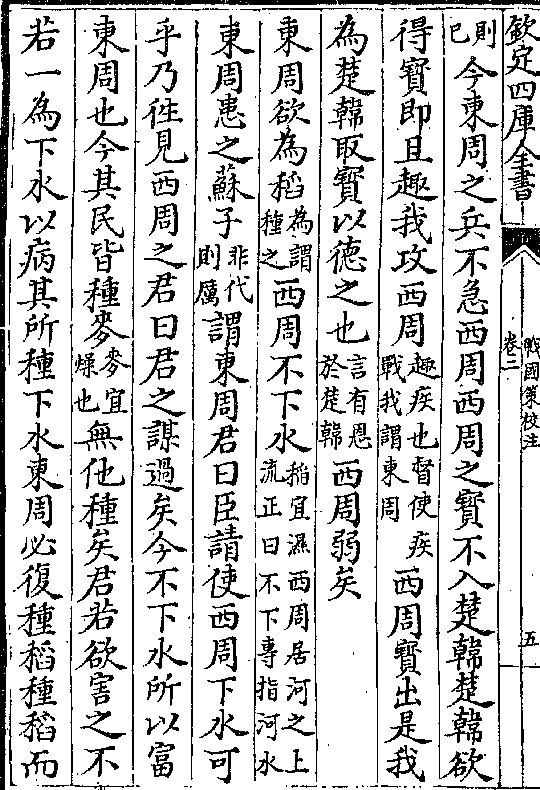 欽定四庫全書
戰國策校注
卷二
五
則已今東周之兵不急西周西周之寳不入楚韓楚韓欲
得寳即且趣我攻西周趣疾也督使疾戰我謂東周西周寳出是我
為楚韓取寳以德之也言有恩於楚韓西周弱矣
東周欲為稻為謂種之西周不下水稻宜濕西周居河之上流正曰不下專指河水
東周患之蘇子非代則厲謂東周君曰臣請使西周下水可
乎乃往見西周之君曰君之謀過矣今不下水所以富
東周也今其民皆種麥麥宜燥也無他種矣君若欲害之不
若一為下水以病其所種下水東周必復種稻種稻而